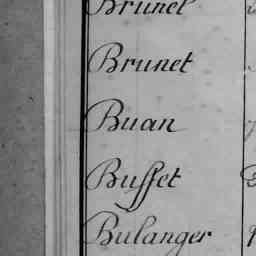 Brunet
Brunet
Buan
Buffet
Bulanger